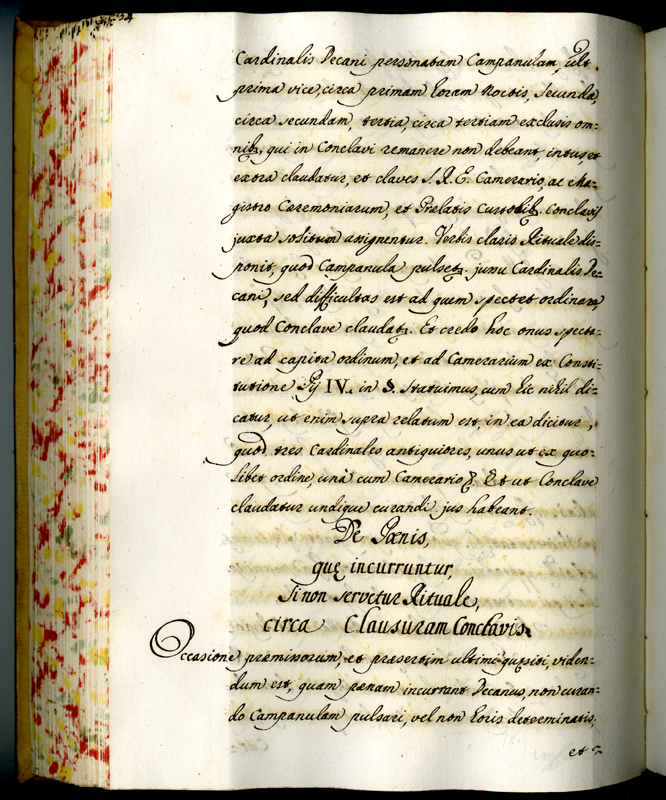 Cardinalis Decani personatam Campanulam, ult.
prima vice, circa primam horam Noctis, secunda,
circa secundam, tertia, circa tertiam exclusis om=
nib, qui in Conclavi remanere non debeant, intus, et
extra claudatur, et claves S. R. E. Camerario, ac Ma=
gistro Cæremoniarum, et Prelatis Custodib. Conclavis
juxta solitum assignentur. Verbis claris Rituale dis=
ponit, quod Campanula pulset. jussu Cardinalis De=
cani, sed difficultas est ad quem spectet ordinare,
quod Conclave claudat. Et credo hoc onus specta=
re ad capita ordinum, et ad Camerarium ex Consti=
tutione Pij IV. in §. Statuimus, cum hic nihil di=
catur, ut enim supra relatum est, in ea dicitur,
quod tres Cardinales antiquiores, unus ut ex quo=
libet ordine, unà cum Camerario & ut Conclave
claudatur undique curandi jus habeant.
De Pœnis,
quę incurruntur,
si non servetur Rituale,
circa Clausuram Conclavis.
Occasione præmissorum, et præsertim ultimi quęsiti, viden=
dum est, quam pænam incurrant Decanus, non curan=
do Campanulam pulsari, vel non horis determinatis,
et